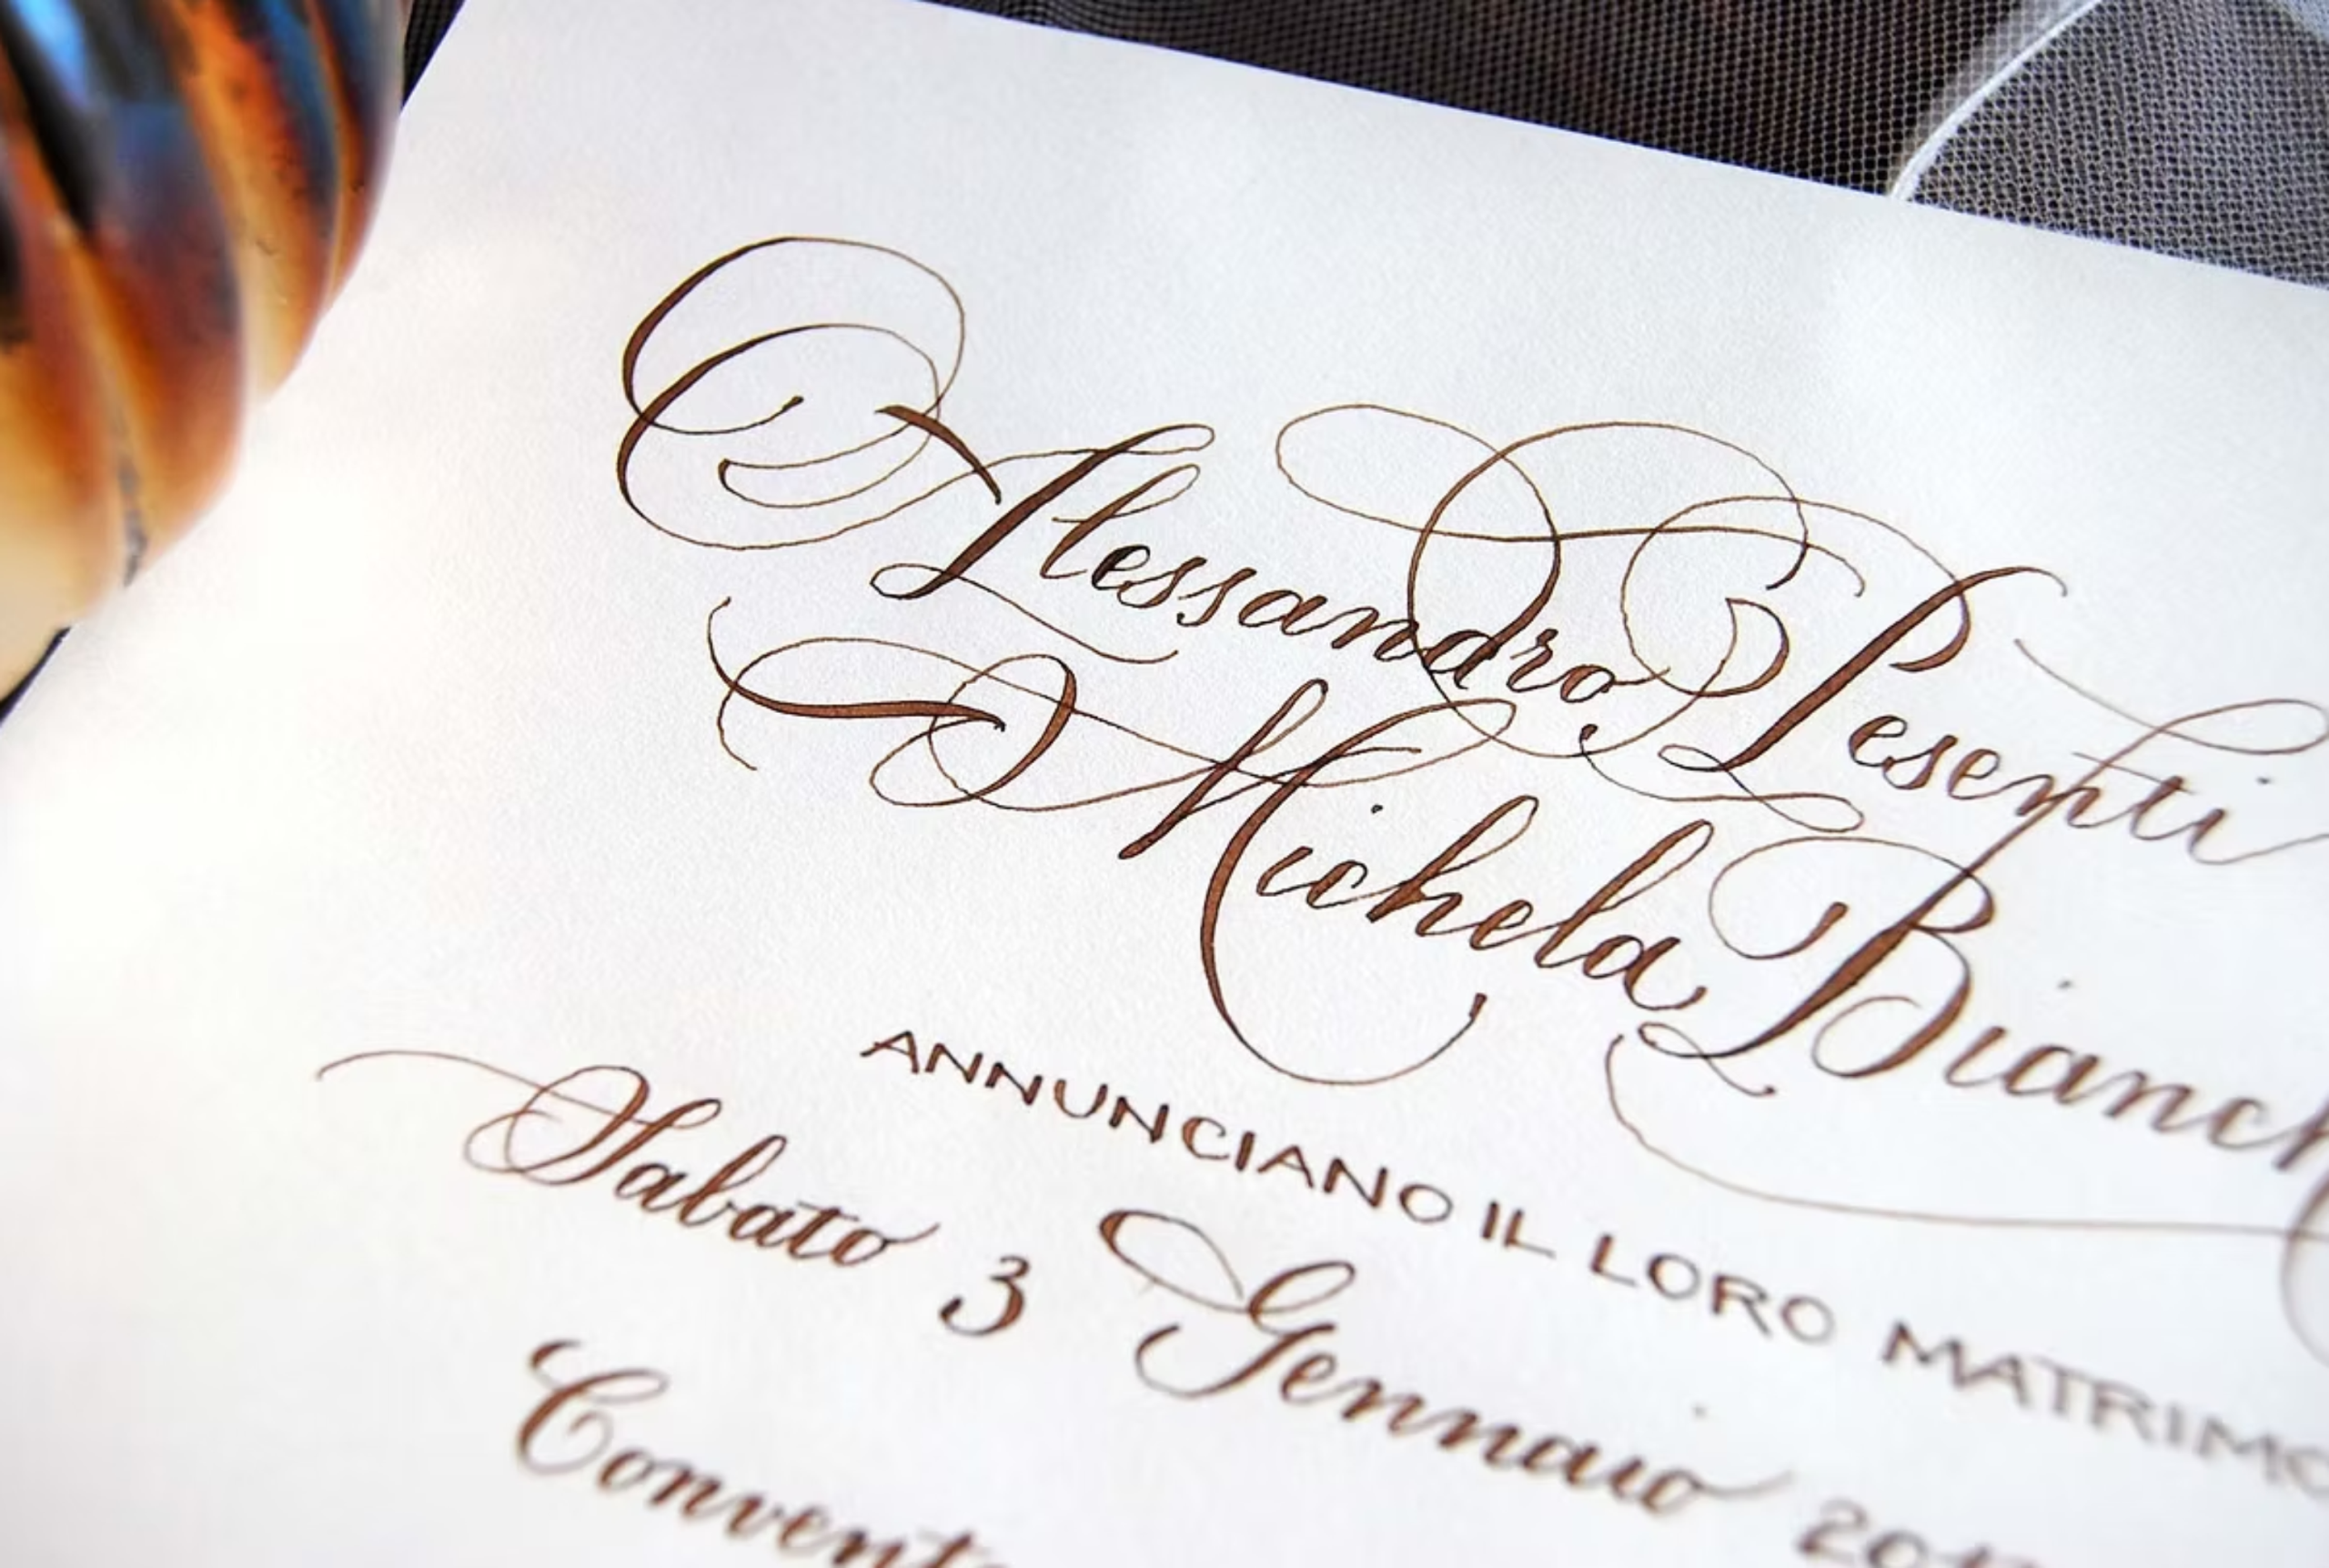 Alessandro Pesenti
Michela Bianch
ANNUNCIANO IL LORO MATRIMO
Sabato 3 Gennaio 201
Convent